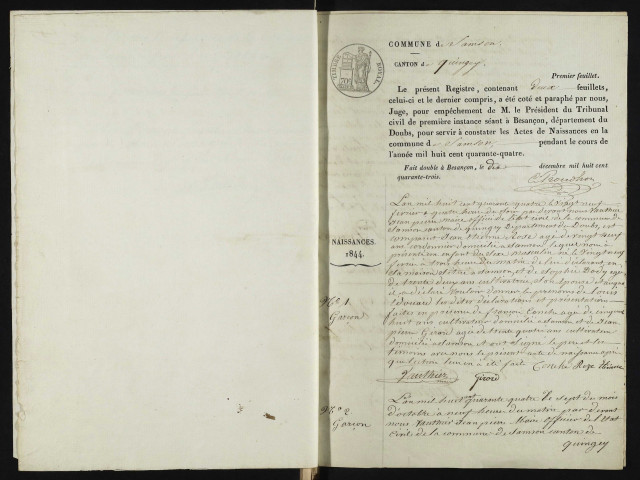 COMMUNE d e Samson.
CANTON d e quingey
Premier feuillet.
Le présent Registre, contenant deux feuillets,
celui-ci et le dernier compris, a été coté et paraphé par nous,
Juge, pour empêchement de M. le Président du Tribunal
civil de première instance séant à Besançon, département du
Doubs, pour servir à constater les Actes de Naissances en la
commune d e Samson pendant le cours de
l'année mil huit cent quarante-quatre.
Fait double à Besançon, le dix décembre mil huit cent
quarante-trois.
TIMBRE ROYAL
NAISSANCES.
1844.
N.o 1.
Garçon
L'an mil huit cent quarante quatre le vingt neuf
fevrier à quatre heure du soir par devant nous Vauthier
jean pierre maire officier de l'état civil de la commune de
Samson canton de quingey Département du Doubs, est
comparu age de vingt neuf
ans, cordonnier domicilié à Samson lequel nous à
présenté un enfant du sexe masculin né le vingt neuf
fevrier à trois heure du matin de lui déclarant en
sa maison située à Samson, et de Sophie Body age
de trente deux ans cultivatrice et son épouse
et à déclaré vouloir donner les prénoms de
Edouard les dites déclarations et présentation
faites en présence de françois Conche age de cinquante
huit ans cultivateur domicilié à Samson et de jean
pierre Girod age de trente quatre ans cultivateur
domicilié à Samson et ont signé le père et les
temoins avec nous le present acte de naissance après
que lecture leur en a été fait Conche
Vauthier Girod
N.o 2
Garçon
L'an mil huit quarante quatre le sept du mois
d'octobre à neuf heures du matin par devant
nous Vauthier jean pierre Maire officier de l'etat
civil de la commune de Samson canton de
quingey